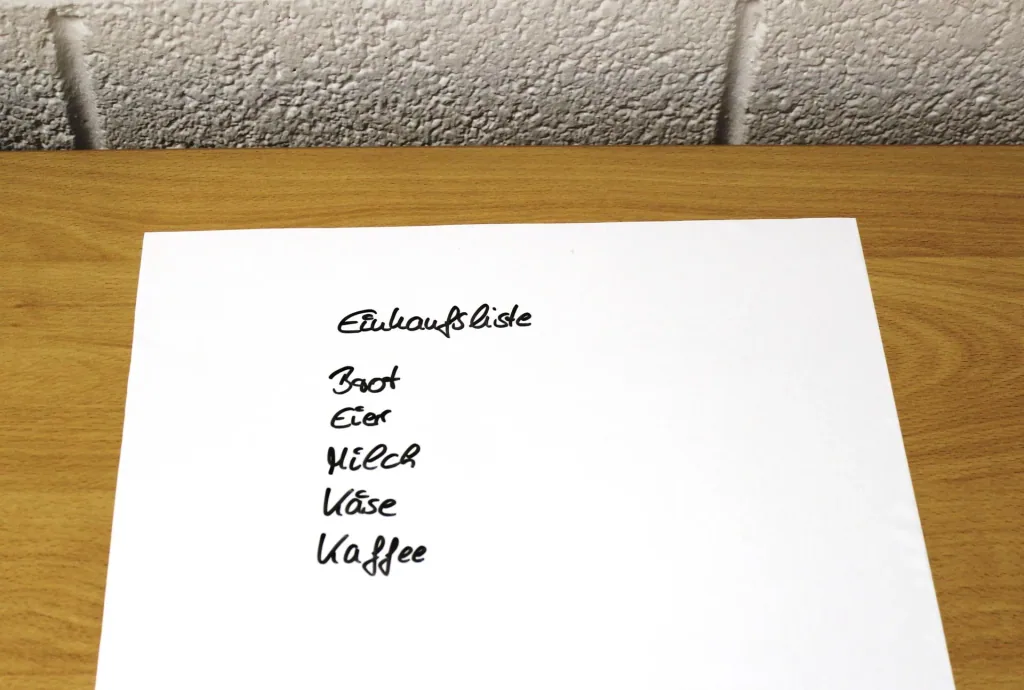 Einkaufsliste
Brot
Eier
Milch
Käse
Kaffee